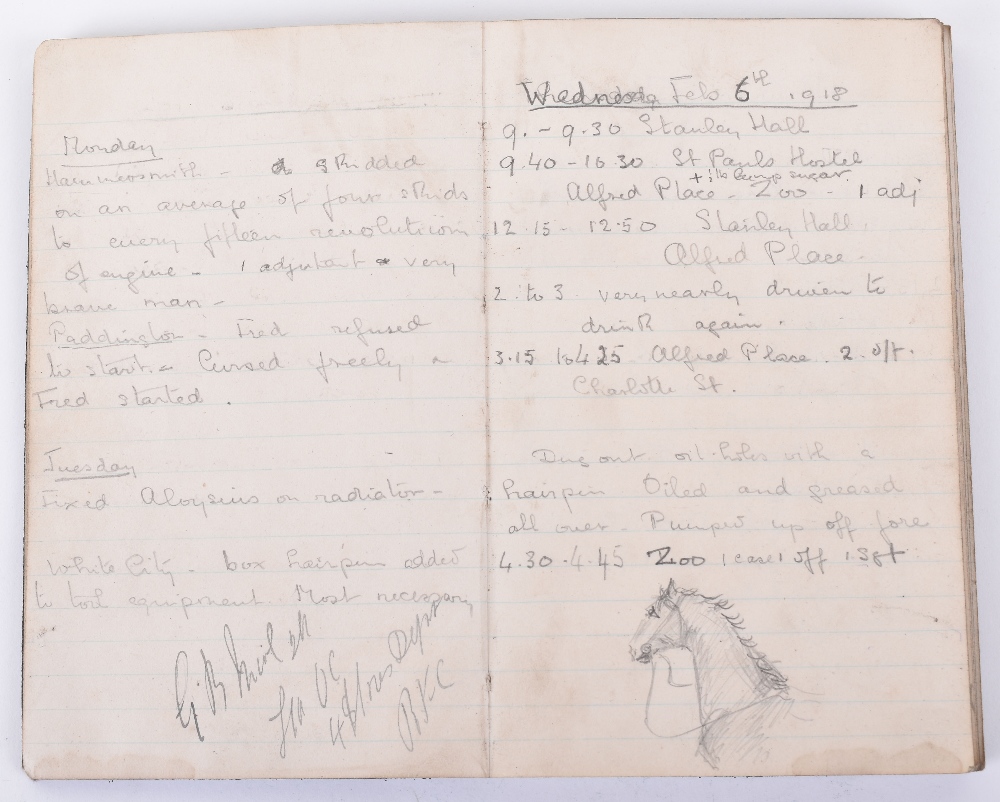 Monday
Hammersmith - skidded
on an average of four skids
to every fifteen revolutions
of engine - 1 adjutant a very
brave man -
Paddington - Fred refused
to start. - Cursed freely &
Fred started.
Tuesday
Fixed Aloysius on radiator -
White City - box hairpin added
to tool equipment. Most necessary
OC
Stores Dept
Wednesday Feb 6th 1918
9. - 9.30 Stanley Hall
9.40 - 10.30 St Pauls Hostel
lump sugar
Alfred Place - Zoo - 1 adj
12.15 - 12.50 Stanley Hall
Alfred Place -
2. to 3. very nearly driven to
drink again.
3.15 to 4.25 Alfred Place. 2. off.
Charlotte St.
Dug out oil-holes with a
hairpin Oiled and greased
all over - Pumped up off fore
4.30 - 4.45 Zoo 1 case 1 off 1 Sgt